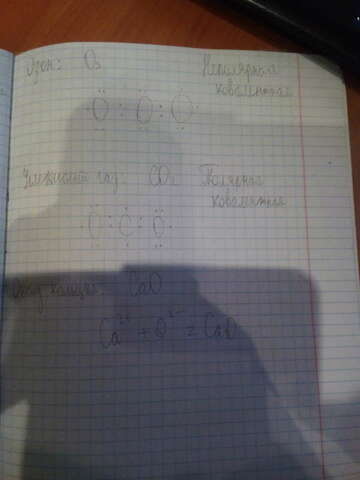 Озон: O₃ Неполярная
ковалентная
:O::O:O:
Углекислый газ: CO₂ Полярная
ковалентная
:O::C::O:
Оксид кальция: CaO
Ca²⁺ + O²⁻ = CaO